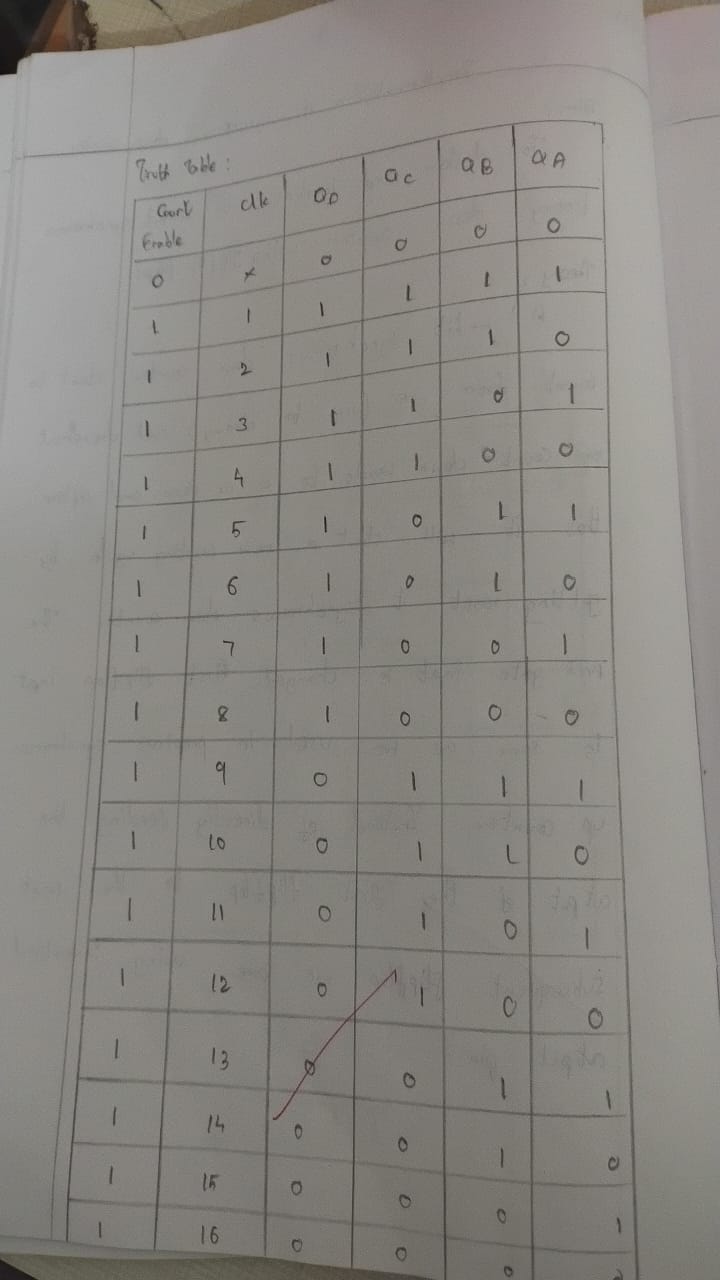 Truth Table :
Count Enable clk QD QC QB QA
0 x 0 0 0 0
1 1 1 1 1 1
1 2 1 1 1 0
1 3 1 1 0 1
1 4 1 1 0 0
1 5 1 0 1 1
1 6 1 0 1 0
1 7 1 0 0 1
1 8 1 0 0 0
1 9 0 1 1 1
1 10 0 1 1 0
1 11 0 1 0 1
1 12 0 1 0 0
1 13 0 0 1 1
1 14 0 0 1 0
1 15 0 0 0 1
1 16 0 0 0